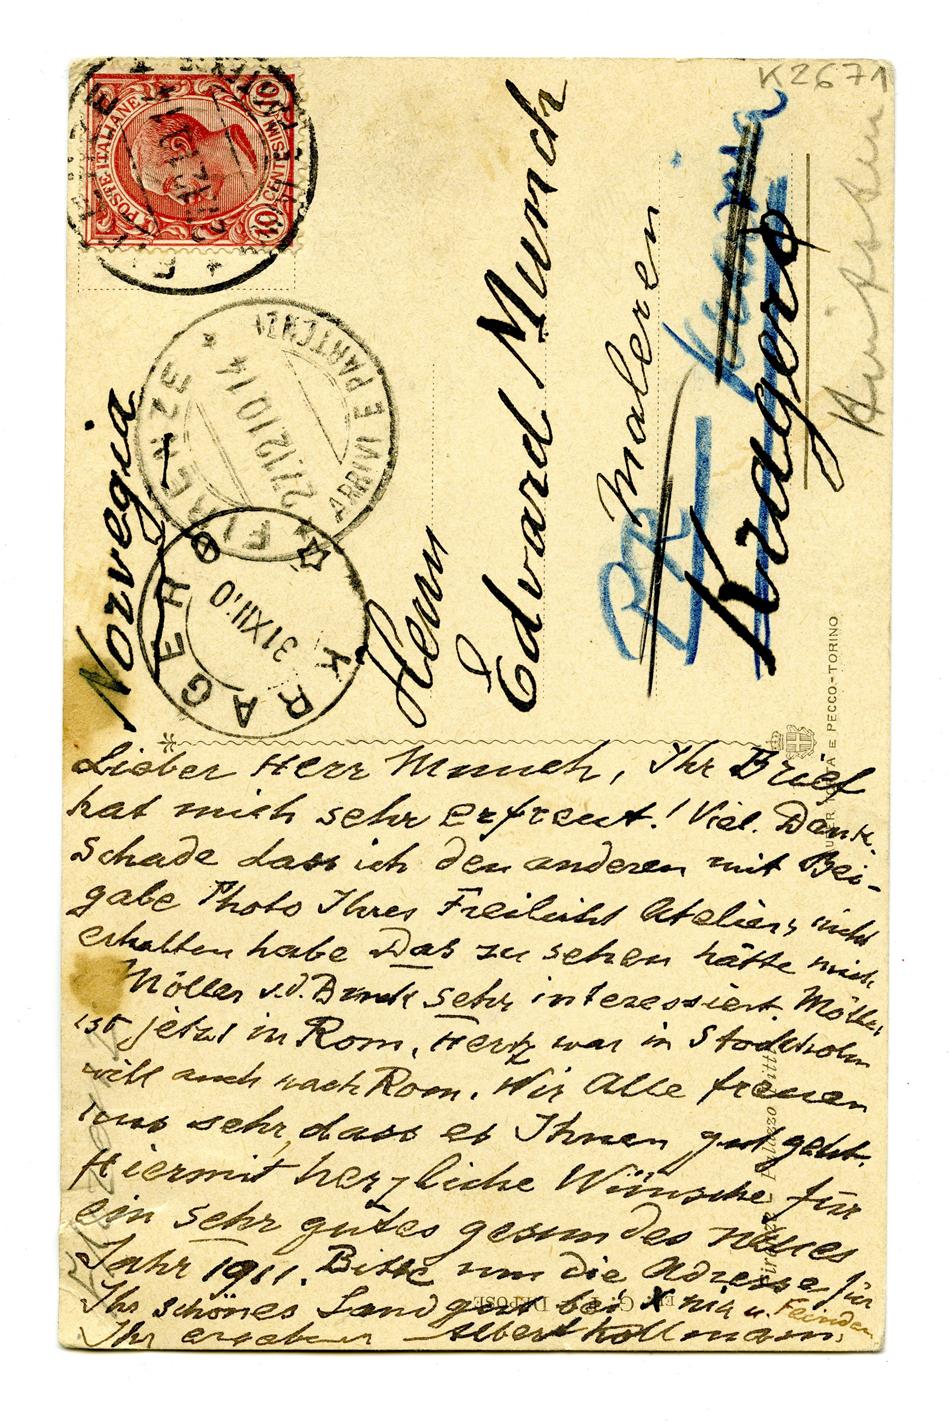 K2671
POSTE·ITALIANE
CENTESIMI 10
FIRENZE
FIRENZE
ARRIVI E PARTENZE
27.12.10.14
KRAGERØ
31 XII.10
Norvegia
Herrn
Edvard Munch
Maleren
Kragerø
PECCO.-TORINO
Lieber Herr Munch, Ihr Brief
hat mich sehr erfreut! Viel. Dank.
Schade dass ich den anderen mit Bei-
gabe Photo Ihres Freilicht Ateliers nicht
erhalten habe Das zu sehen hätte mich,
Möller v.d. Bruck sehr interessiert. Möller
ist jetzt in Rom, Hertz war in Stockholm
will auch nach Rom. Wir Alle freuen
uns sehr, dass es Ihnen gut geht.
Hiermit herzliche Wünsche für
ein sehr gutes gesundes neues
Jahr 1911. Bitte um die Adresse für
Ihr schönes Landgut bei Xnia u. Feinden
Ihr ergebener Albert Kollmann.